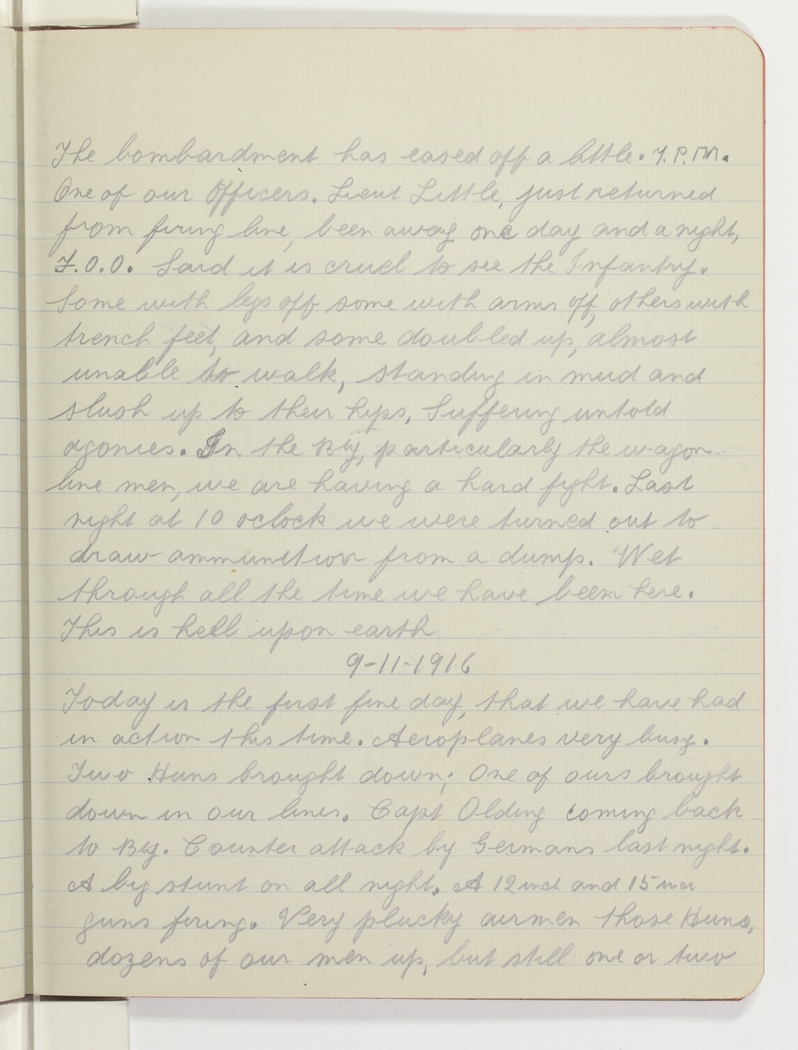 The bombardment has eased off a little. 7.P.M.
One of our Officers. Lieut Little, just returned
from firing line, been away one day and a night,
F.O.O. Said it is cruel to see the Infantry.
Some with legs off some with arms off, others with
trench feet, and some doubled up, almost
unable to walk, standing in mud and
slush up to their hips, Suffering untold
agonies. In the Bty, particularly the wagon
line men, we are having a hard fight. Last
night at 10 oclock we were turned out to
draw ammunition from a dump. Wet
through all the time we have been here.
This is hell upon earth
9-11-1916
Today is the first fine day, that we have had
in action this time. Aeroplanes very busy.
Two Huns brought down; One of ours brought
down in our lines. Capt Olding coming back
to Bty. Counter attack by Germans last night.
A big stunt on all night. A 12 inch and 15 inch
guns firing. Very plucky airmen those Huns,
dozens of our men up, but still one or two